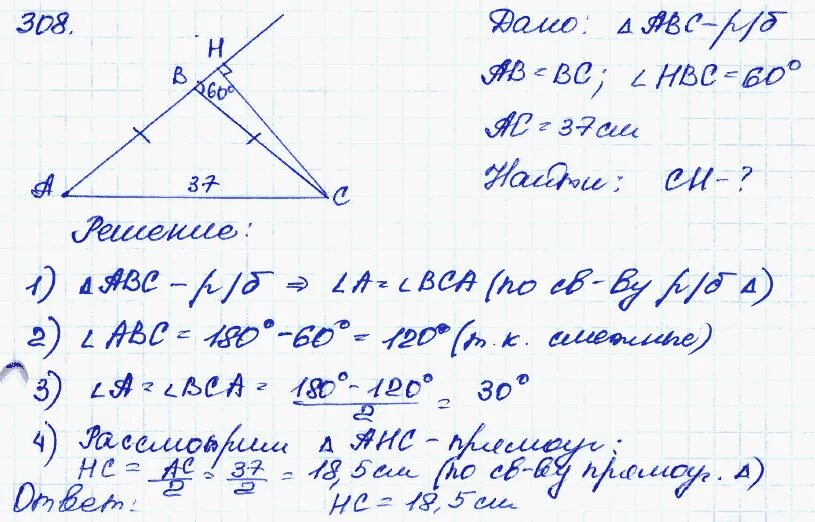 308.
Дано: △ABC-р/б
H
B
60°
AB=BC; ∠HBC=60°
AC=37см
37
A
C
Найти: CH-?
Решение:
1) △ABC-р/б ⇒ ∠A=∠BCA (по св-ву р/б △)
2) ∠ABC=180°-60°=120° (т.к. смежные)
3) ∠A=∠BCA= (180°-120°)/2 = 30°
4) Рассмотрим △AHC-прямоуг:
HC= AC/2 = 37/2 = 18,5см (по св-ву прямоуг. △)
Ответ: HC=18,5см